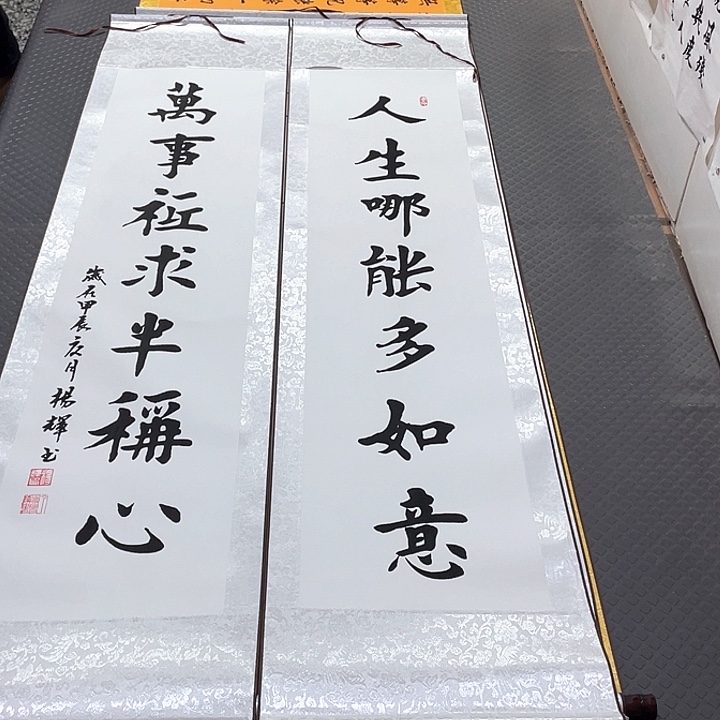 人生哪能多如意
萬事祗求半稱心
歲在甲辰之月楊輝書